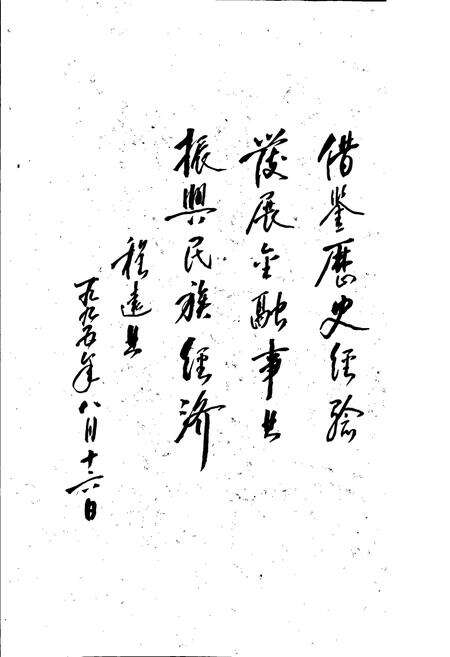 借鉴歷史经验
发展金融事业
振興民族经济
程远业
一九九五年八月十六日